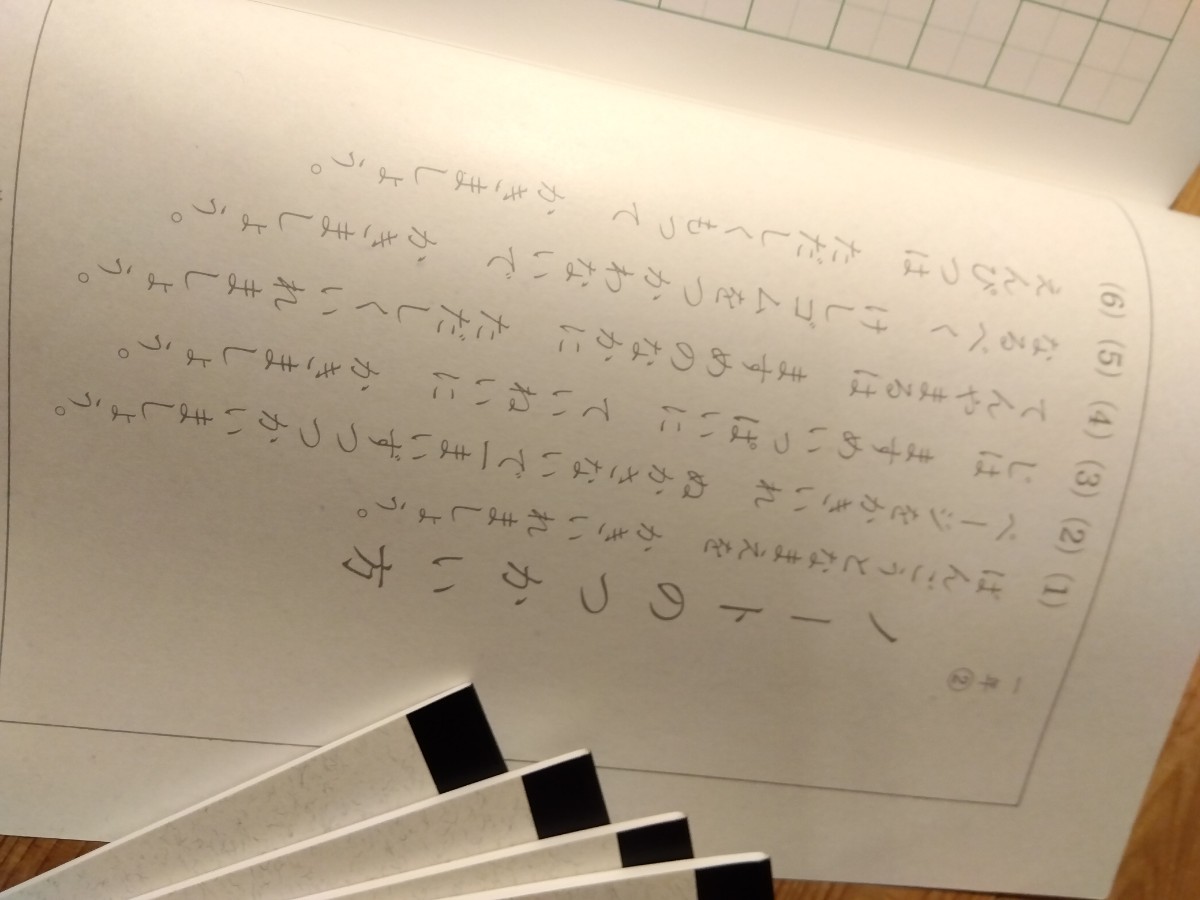 一年②
ノートのつかい方
(1) ばんごうとなまえを かきいれましょう。
(2) ページをかきいれ ぬかさないで一まいずつつかいましょう。
(3) じは ますめいっぱいに ていねいに かきましょう。
(4) てんやまるは ますめのなかに ただしくいれましょう。
(5) なるべく けしゴムをつかわないで かきましょう。
(6) えんぴつは ただしくもって かきましょう。